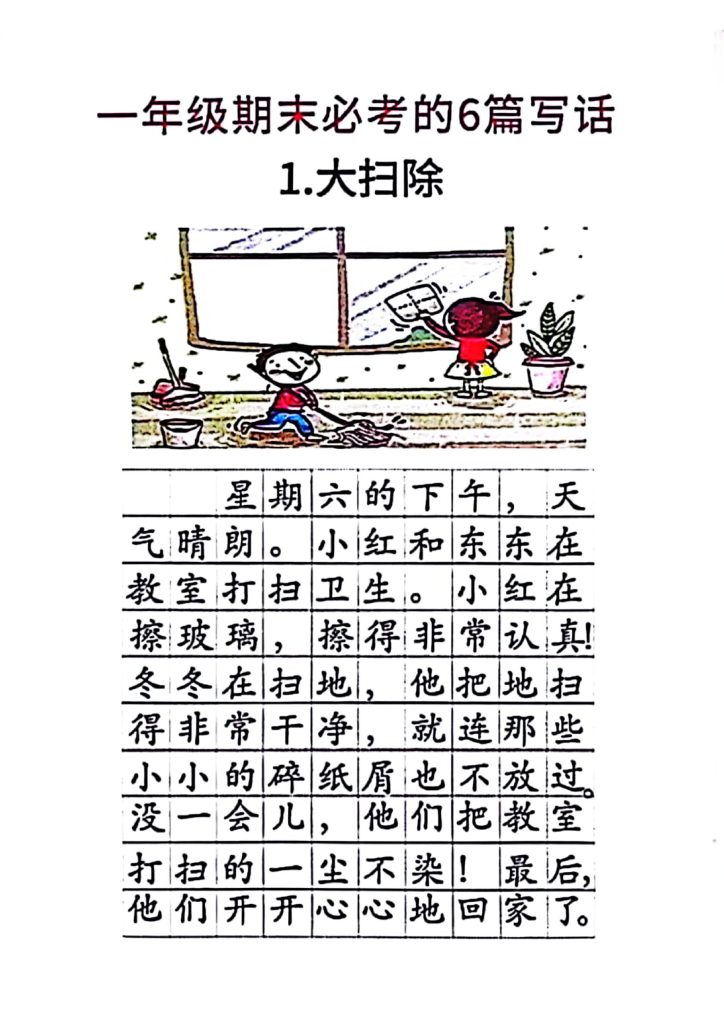 一年级期末必考的6篇写话
1.大扫除
星期六的下午，天
气晴朗。小红和东东在
教室打扫卫生。小红在
擦玻璃，擦得非常认真！
冬冬在扫地，他把地扫
得非常干净，就连那些
小小的碎纸屑也不放过。
没一会儿，他们把教室
打扫的一尘不染！最后，
他们开开心心地回家了。